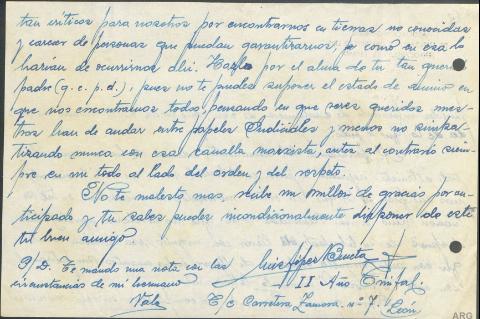 tan críticos para nosotros por encontrarnos en tierras no conocidas
y carecer de personas que puedan garantirarnos, pe como en esa lo
harían de ocurrirnos ahí. Hazlo por el alma de tu tan querido
padre (q.e.p.d.), pues no te puedes suponer el estado de animo en
que nos encontramos todos pensando en que seres queridos nues-
tros han de andar entre papeles Judiciales y menos no simpa-
tizando nunca con esa canalla marxista, antes al contrario siem-
pre en un todo al lado del orden y del respeto.
No te molesto mas, recibe un millón de gracias por an-
ticipado y tu sabes puedes incondicionalmente disponer de este
tu buen amigo
P/D. Te mando una nota con las
circunstancias de mi hermano
Vale
Luis López
II Año Triunfal.
T/C Carretera Zamora nº 7. León
ARG